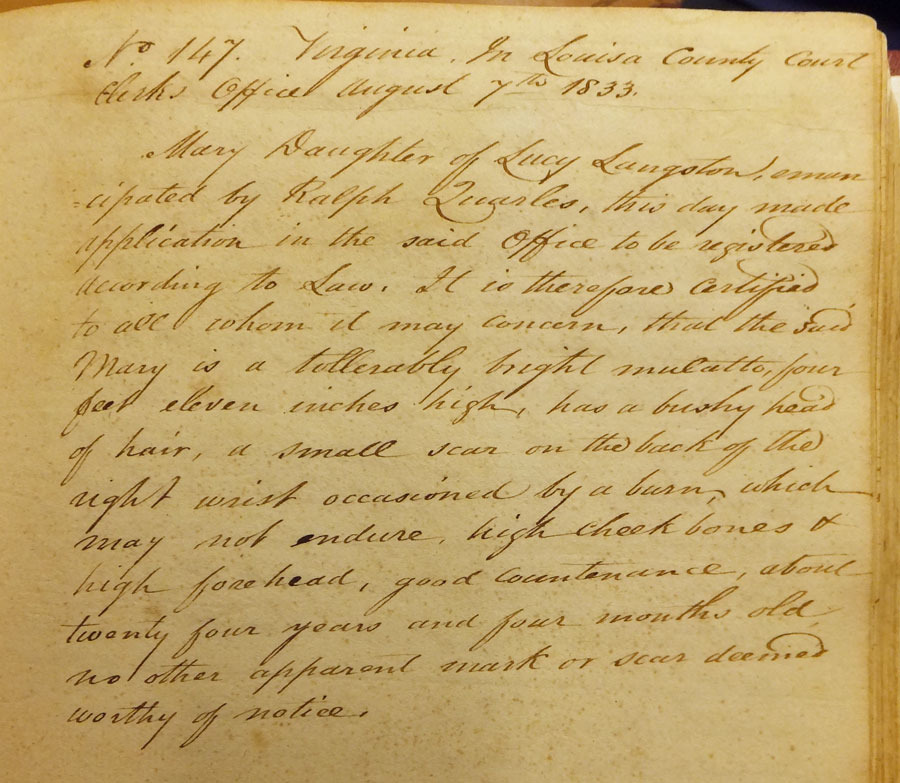 No. 147. Virginia. In Louisa County Court
Clerks Office August 7th 1833.
Mary Daughter of Lucy Langston, eman
=cipated by Ralph Quarles, this day made
application in the said Office to be registered
according to Law. It is therefore certified
to all whom it may concern, that the said
Mary is a tollerably bright mulatto, four
feet eleven inches high, has a bushy head
of hair, a small scar on the back of the
right wrist occasioned by a burn, which
may not endure, high cheek bones &
high forehead, good countenance, about
twenty four years and four months old
no other apparent mark or scar deemed
worthy of notice.